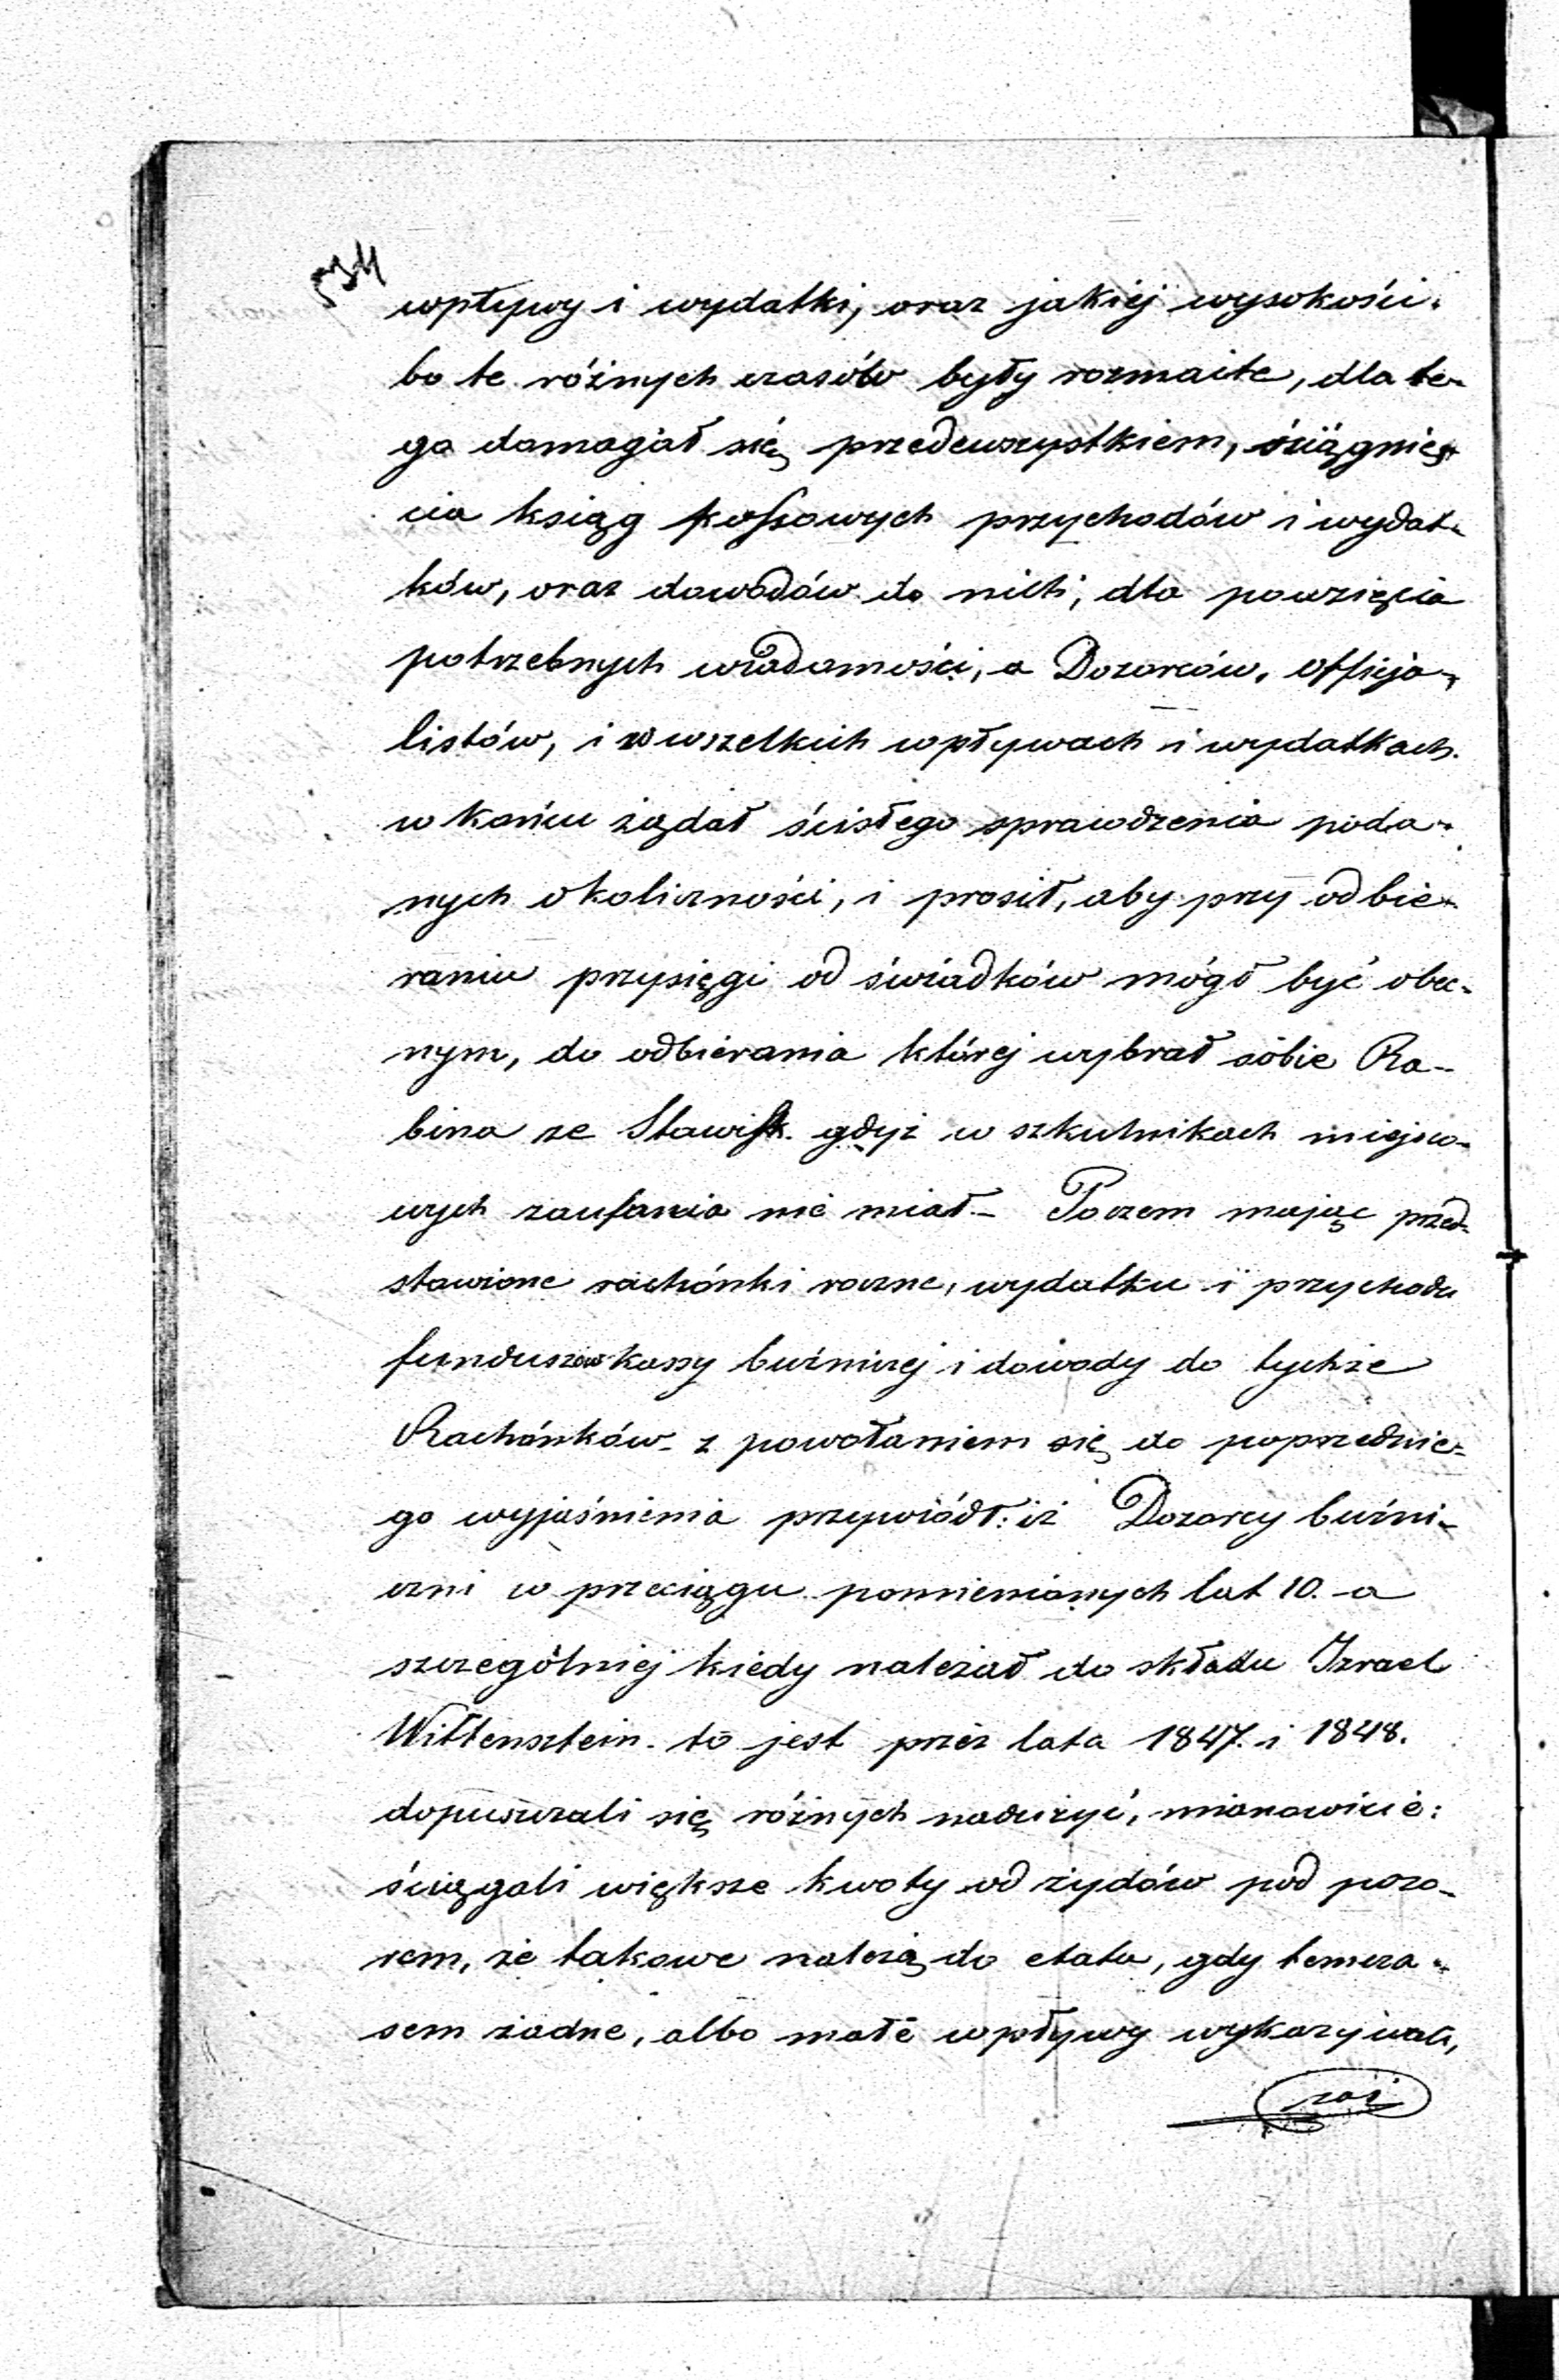 wpływy i wydatki, oraz jakiéj wysokości.
bo te różnych czasów były rozmaite, dla te-
go domagał się przedewszystkiem, ściągnię-
cia ksiąg kassowych przychodów i wydat-
ków, oraz dowodów do nich, dla powzięcia
potrzebnych wiadomości, o Dozorców, officja-
listów, i o wszelkich wpływach i wydatkach.
w końcu żądał ścisłego sprawdzenia poda-
nych okoliczności, i prosił, aby przy odbie-
raniu przysięgi od świadków mógł być obec-
nym, do odbierania której wybrał sobie Ra-
bina ze Stawisk. gdyż w szkulnikach miejsco-
wych zaufania nie miał. – Poczem mając przed-
stawione rachónki roczne, wydatku i przychodu
funduszów kassy bużniczej i dowody do tychże
Rachónków – z powołaniem się do poprzednie-
go wyjaśnienia przywiódł: iż Dozorcy bużni-
czni w przeciągu pomienionych lat 10. – a
szczególniej kiedy należał do składu Izrael
Wittensztein – to jest przez lata 1847. i 1848.
dopuszczali się różnych nadużyć, mianowicie:
ściągali większe kwoty od żydów pod pozo-
rem, że takowe należą do etatu, gdy temcza-
sem żadne, albo małe wpływy wykazywali,
zaś